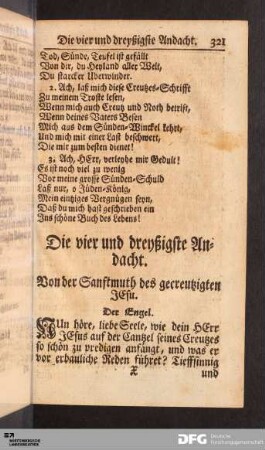 Die vier und dreyßigste Andacht. 321
Tod, Sünde, Teufel ist gefällt
Von dir, du Heyland aller Welt,
Du starcker Uberwinder.
2. Ach, laß mich diese Creutzes-Schrifft
Zu meinem Troste lesen,
Wenn mich auch Creutz und Noth betrift,
Wenn deines Vaters Besen
Mich aus dem Sünden-Winckel kehrt,
Und mich mit einer Last beschwert,
Die mir zum besten dienet!
3. Ach, HErr, verleyhe mir Gedult!
Es ist noch viel zu wenig
Vor meine grosse Sünden-Schuld
Laß nur, o Jüden-König,
Mein eintziges Vergnügen seyn,
Daß du mich hast geschrieben ein
Ins schöne Buch des Lebens!
Die vier und dreyßigste An-
dacht.
Von der Sanftmuth des gecreutzigten
JEsu.
Der Engel.
NUn höre, liebe Seele, wie dein HErr
JEsus auf der Cantzel seines Creutzes
so schön zu predigen anfängt, und was er
vor erbauliche Reden führet? Tieffsinnig
X und
DFG
Deutsche
Forschungsgemeinschaft